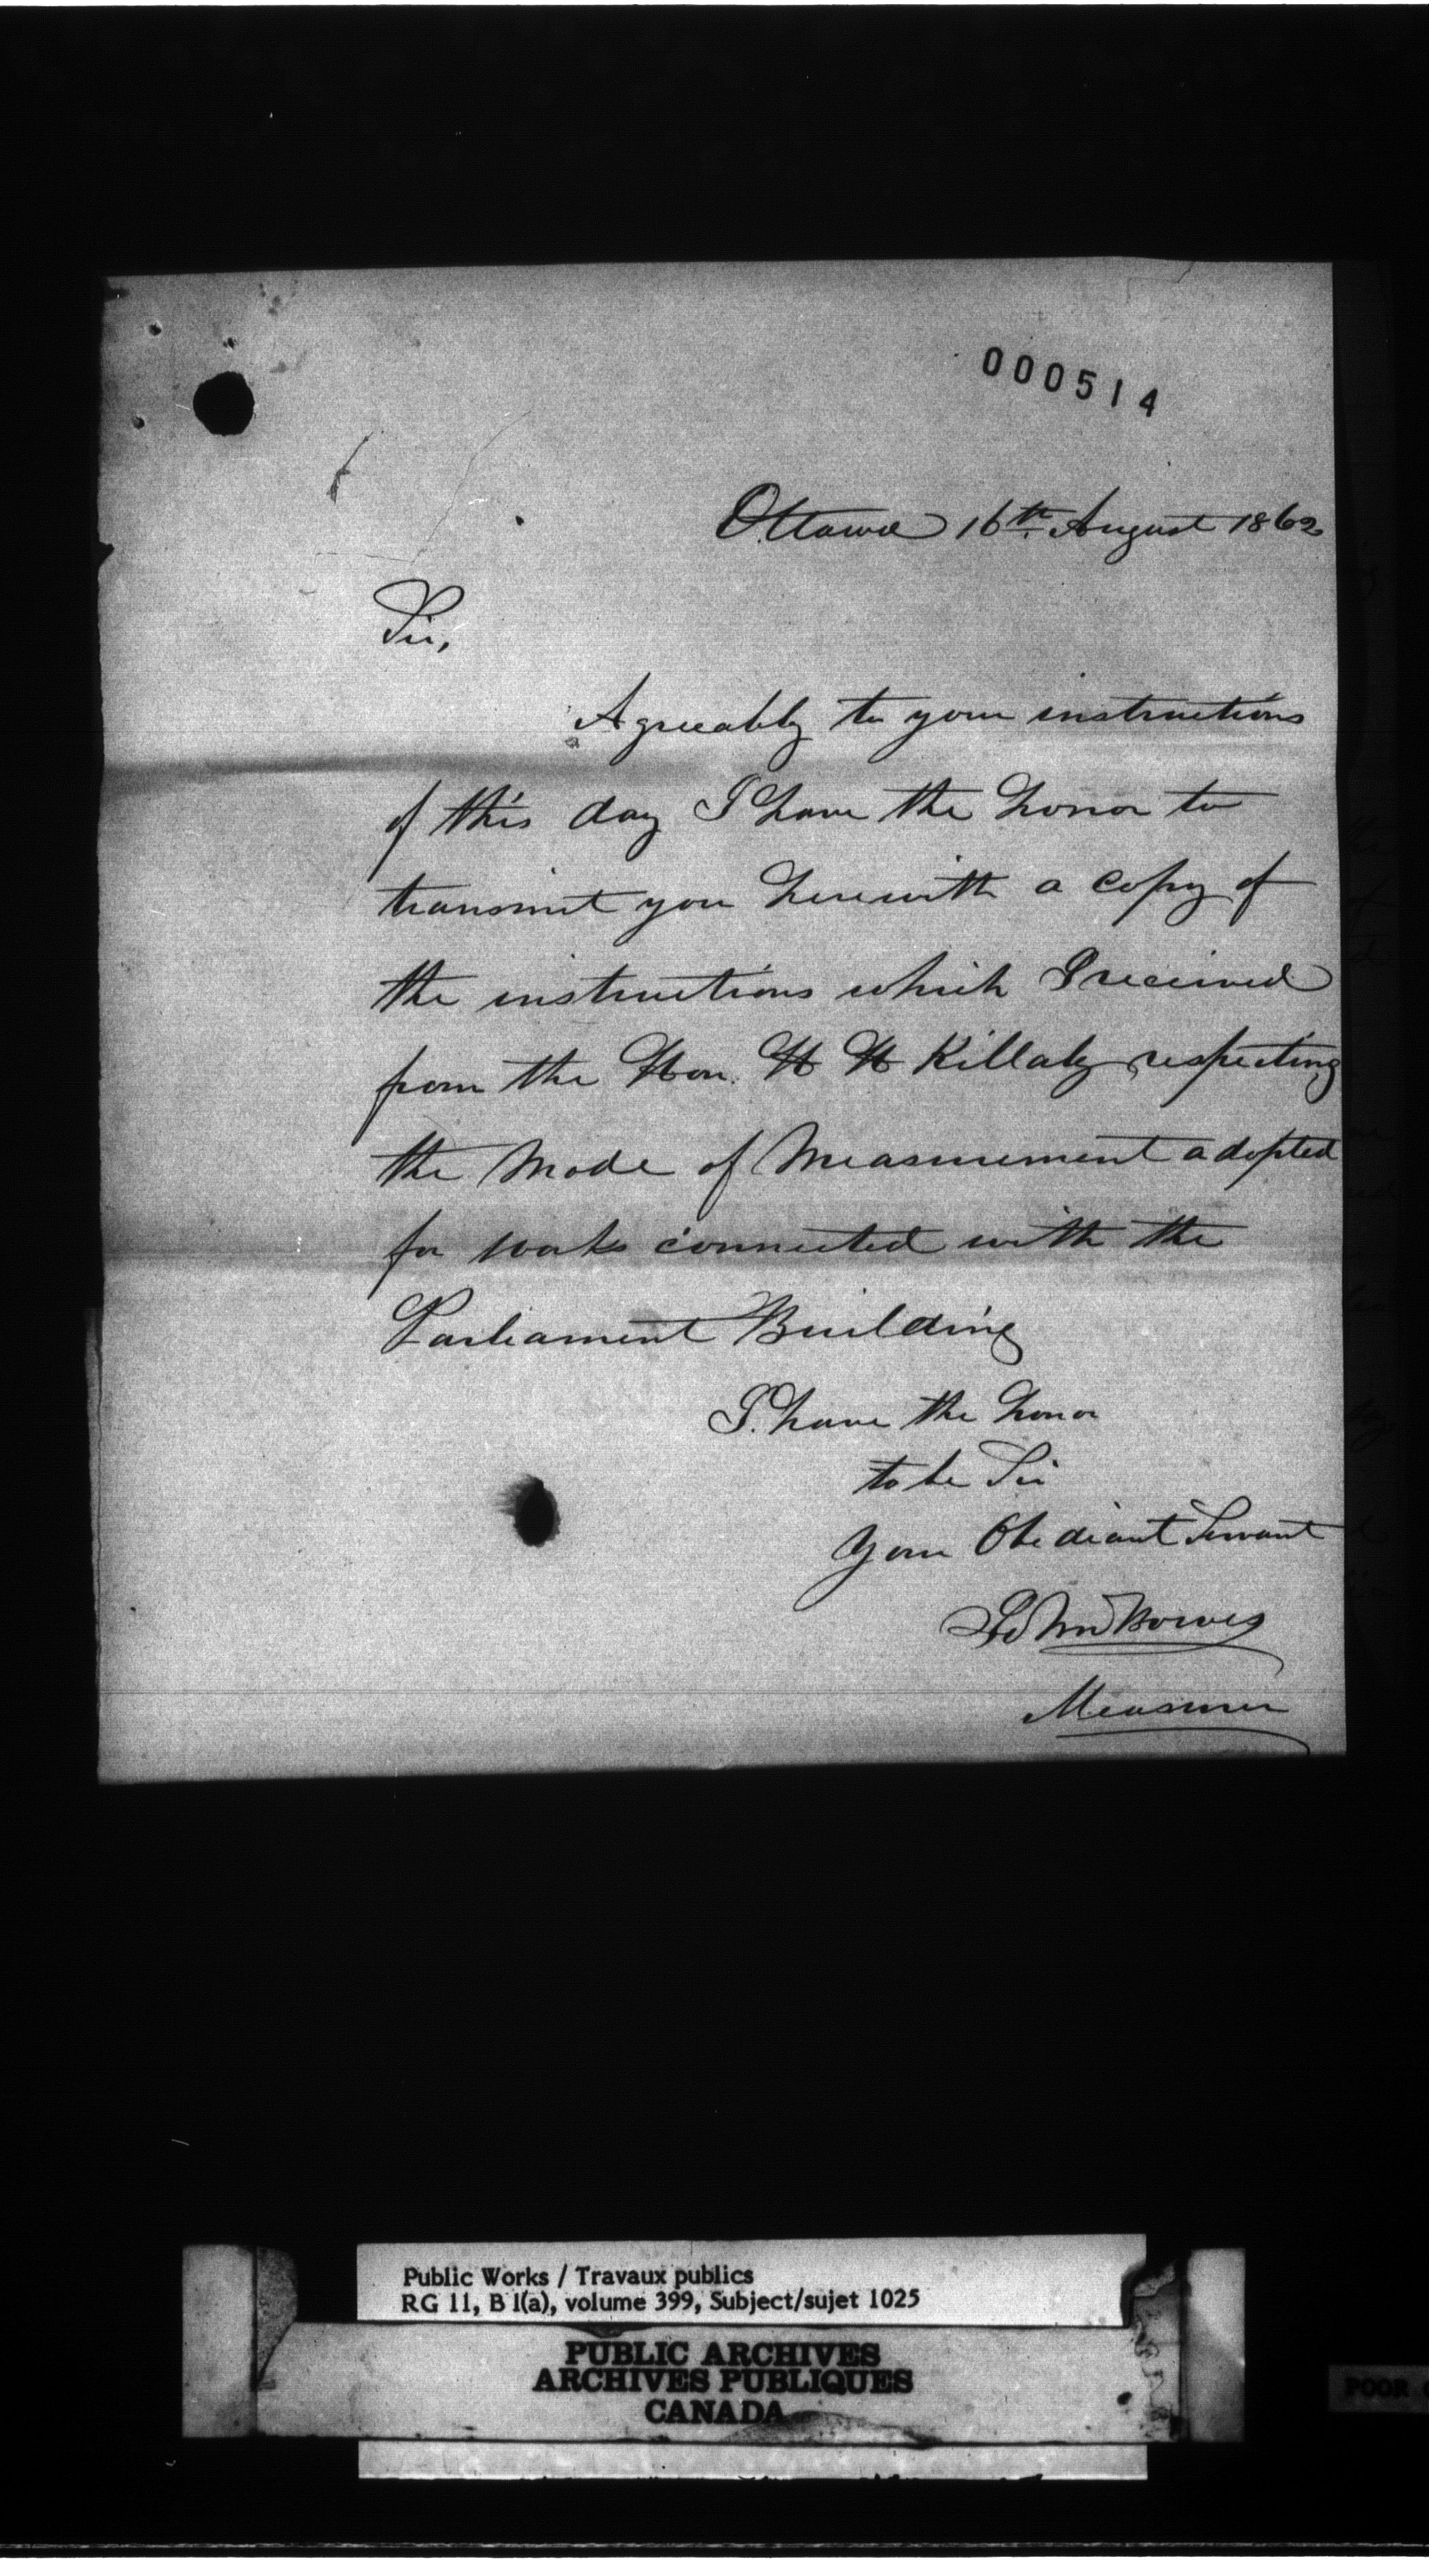 000514
Ottawa 16th August 1862
Sir,
Agreeably to your instructions
of this day I have the honor to
transmit you herewith a copy of
the instructions which I received
from the Hon. H H Killaly respecting
the Mode of Measurement adopted
for works connected with the
Parliament Building
I have the honor
to be Sir
Your Obediant Servant
John Bowes
Measurer
Public Works / Travaux publics
RG 11, B 1(a), volume 399, Subject/sujet 1025
PUBLIC ARCHIVES
ARCHIVES PUBLIQUES
CANADA
POOR